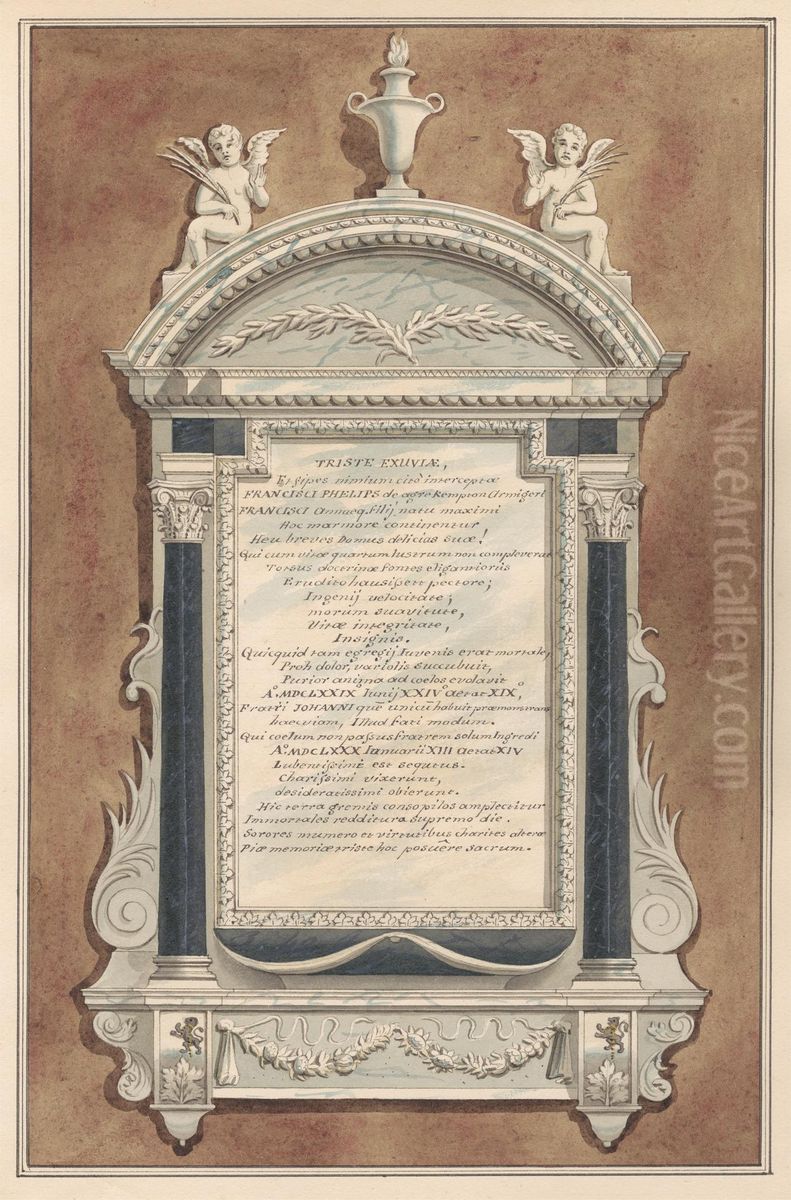 TRISTE EXUVIÆ,
Et spes nimium cito interceptæ
FRANCISCI PHELIPS de agro Kempton Armigeri
FRANCISCI annueq. filij natu maximi
Hoc marmore continentur
Heu breves Domus delicias suæ!
Qui cum vitæ quartum lustrum non compleverat
Totsus doctrinæ fontes eligantioris
Erudito hausissett pectore;
Ingenij velocitate;
morum suavitute,
Vitæ integritate,
Insignis.
Quicquid tam egregij Iuvenis erat mortale,
Proh dolor, variolis succubuit,
Purior anima ad coelos evolavit
Aº. MDCLXXIX Iunij XXIVº aetat XIX,
Fratri JOHANNI quē unicū habuit præmonstrans
haec viam, Illud fati modum.
Qui coelum non passus fratrem solum Ingredi
Aº. MDCLXXX Ianuarii XIII aetat XIV
Lubentissime est sequtus.
Charissimi vixerunt,
desideratissimi obierunt.
Hic terra gremis consopilos amplectitur
Immortales redditura supremo die.
Sorores numero et virtutibus charites alteræ
Piæ memoriæ triste hoc posuêre sacrum.
NiceArtGallery.com